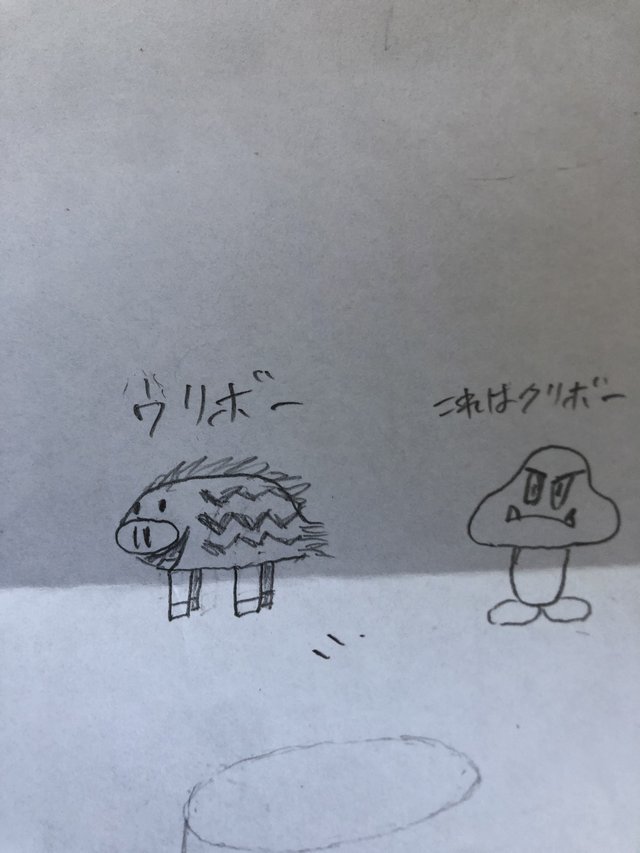 ウリボー
これはクリボー